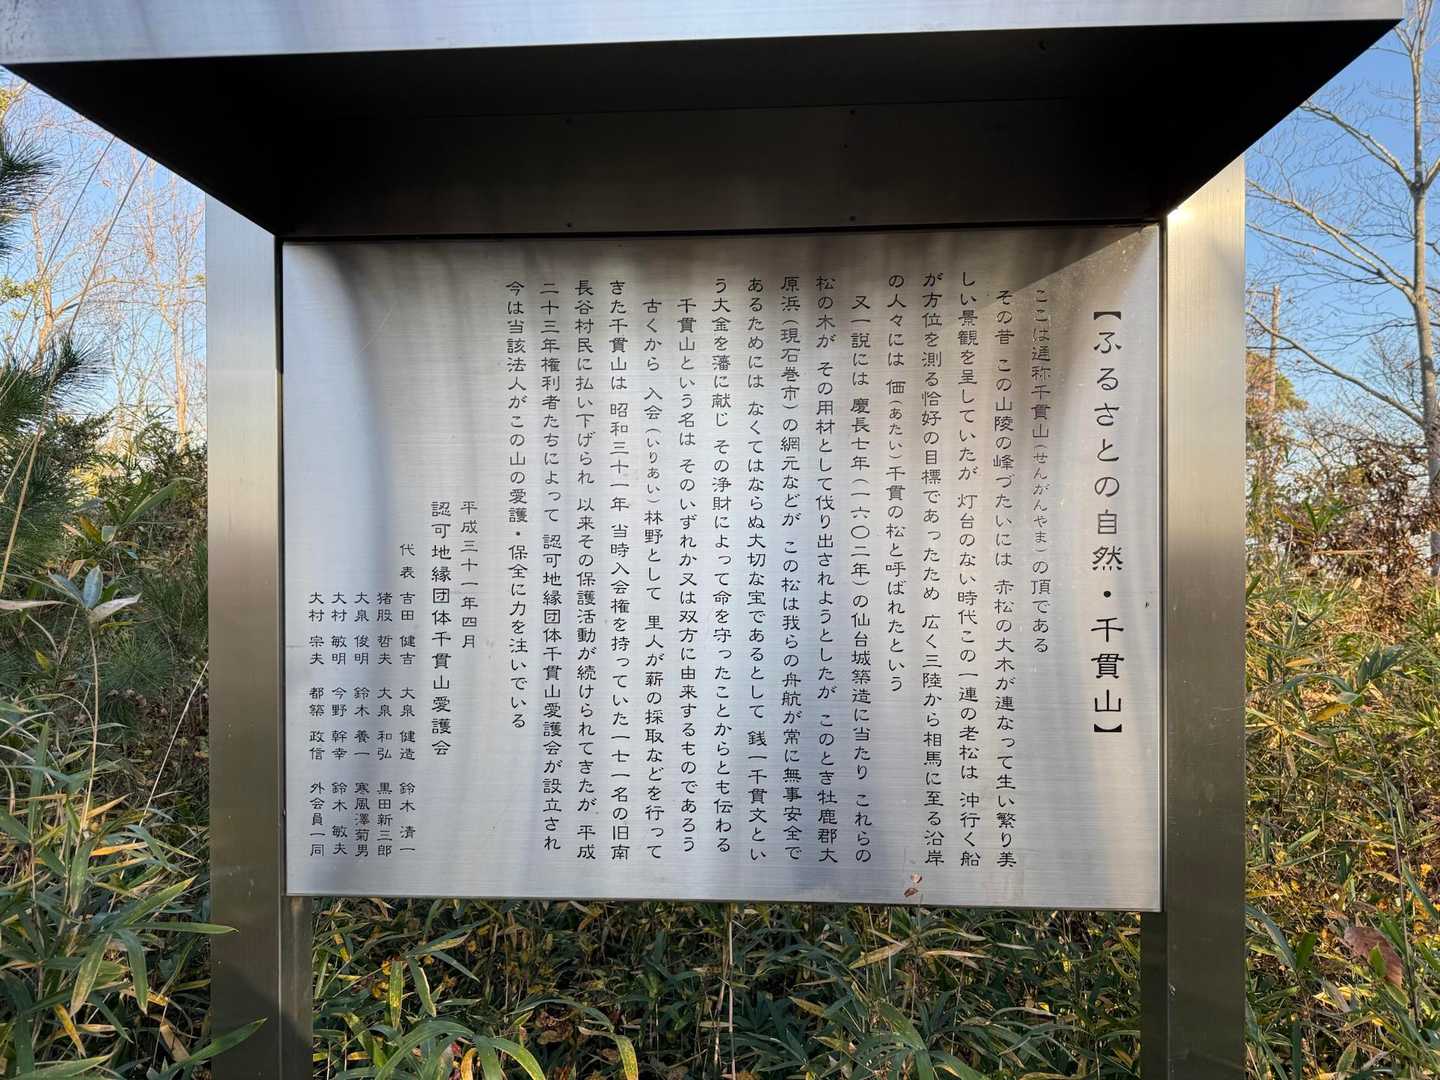 【ふるさとの自然・千貫山】
ここは通称千貫山(せんがんやま)の頂である
その昔 この山陵の峰づたいには 赤松の大木が連なって生い繁り美
しい景観を呈していたが 灯台のない時代この一連の老松は 沖行く船
が方位を測る恰好の目標であったため 広く三陸から相馬に至る沿岸
の人々には 価(あたい)千貫の松と呼ばれたという
又一説には 慶長七年(一六〇二年)の仙台城築造に当たり これらの
松の木が その用材として伐り出されようとしたが このとき牡鹿郡大
原浜(現石巻市)の網元などが この松は我らの舟航が常に無事安全で
あるためには なくてはならぬ大切な宝であるとして 銭一千貫文とい
う大金を藩に献じ その浄財によって命を守ったことからとも伝わる
千貫山という名は そのいずれか又は双方に由来するものであろう
古くから 入会(いりあい)林野として 里人が薪の採取などを行って
きた千貫山は 昭和三十一年 当時入会権を持っていた一七一名の旧南
長谷村民に払い下げられ 以来その保護活動が続けられてきたが 平成
二十三年権利者たちによって 認可地縁団体千貫山愛護会が設立され
今は当該法人がこの山の愛護・保全に力を注いでいる
平成三十一年四月
認可地縁団体千貫山愛護会
代表 吉田 健吉 大泉 健造 鈴木 清一
猪股 哲夫 大泉 和弘 黒田新三郎
大泉 俊明 鈴木 養一 寒風澤菊男
大村 敏明 今野 幹幸 鈴木 敏夫
大村 宗夫 都築 政信 外会員一同